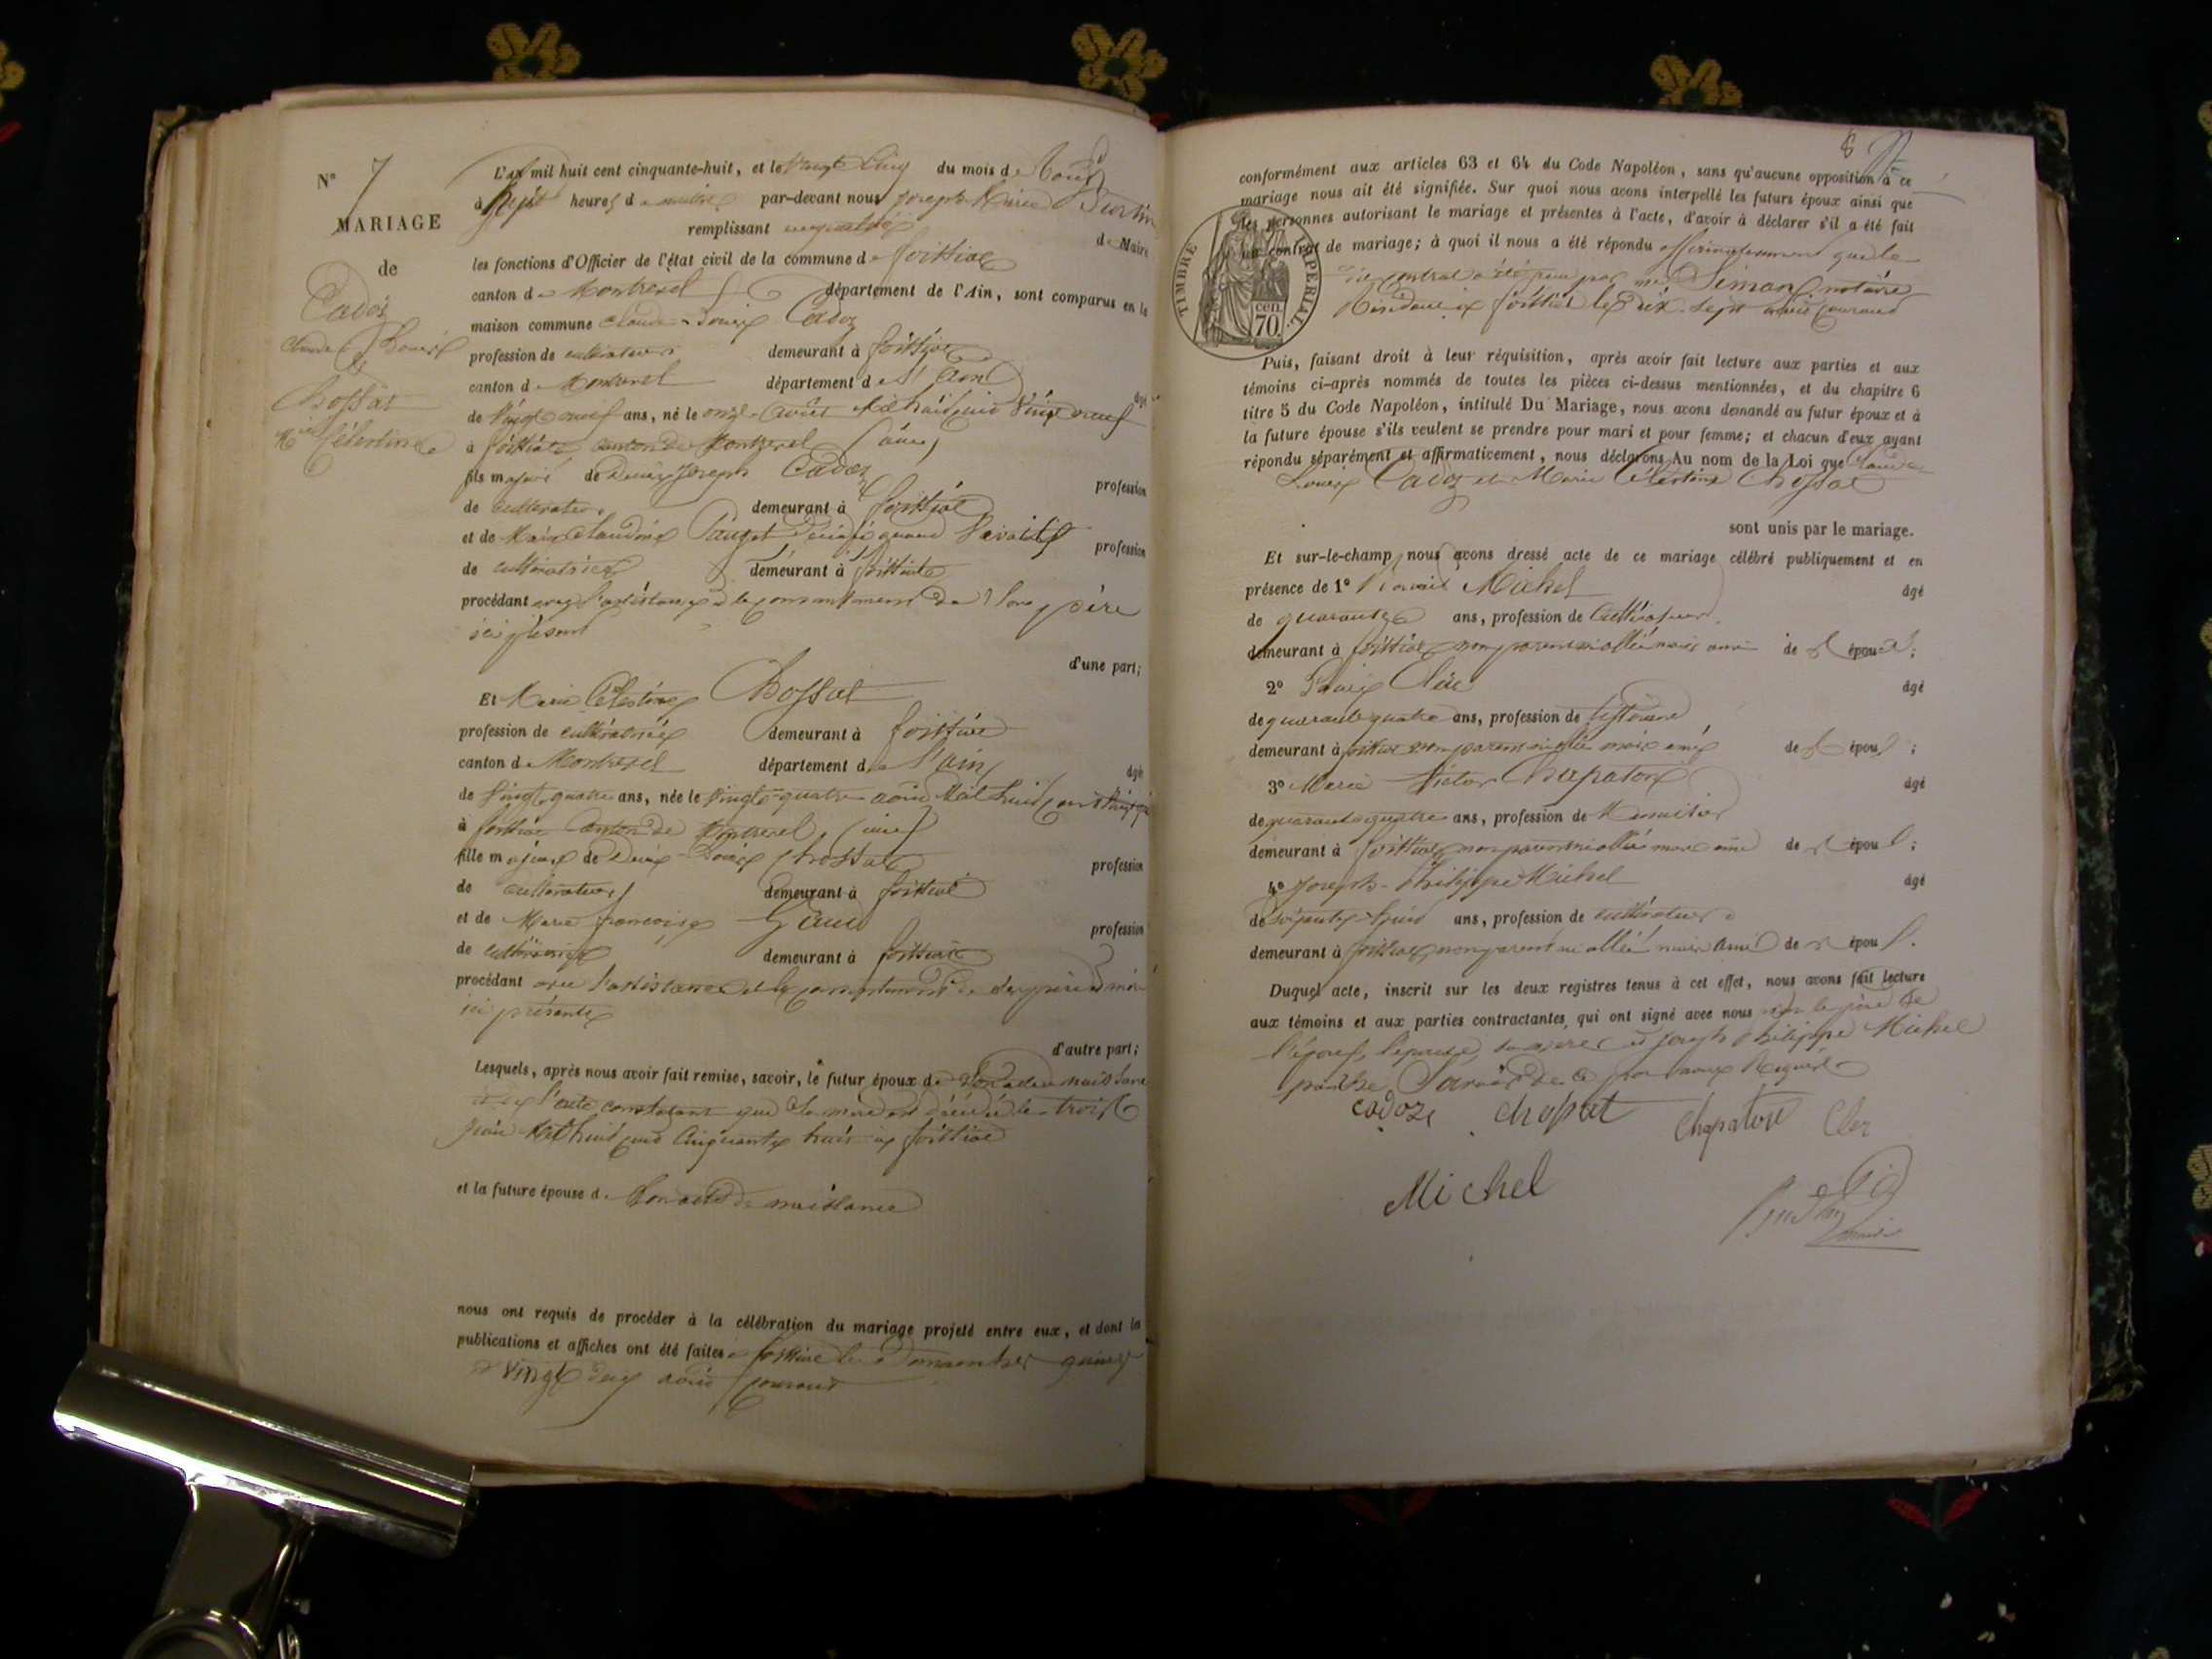 N° 7
MARIAGE
de
Cadoz
Claude Louis
et
Chossat
Mie Célestine
L'an mil huit cent cinquante-huit, et le vingt cinq du mois d'août
à sept heures du matin par-devant nous Joseph Marie
remplissant en qualité de Maire
les fonctions d'Officier de l'état civil de la commune de foissiat
canton de Montrevel département de l'Ain, sont comparus en la
maison commune Claude Louis Cadoz
profession de cultivateur demeurant à foissiat
canton de Montrevel département de l'ain âgé
de vingt neuf ans, né le onze août mil huit cent vingt neuf
à foissiat canton de Montrevel (ain)
fils majeur de Denis Joseph Cadoz profession
de cultivateur demeurant à foissiat
et de Marie Claudine profession
de cultivatrice demeurant à foissiat
procédant avec l'assistance et le consentement de son père
ici présent
d'une part;
Et Marie Célestine Chossat
profession de cultivatrice demeurant à foissiat
canton de Montrevel département de l'ain âgée
de vingt quatre ans, née le vingt quatre août mil huit cent
à foissiat canton de Montrevel (ain)
fille majeure de Denis Louis Chossat profession
de cultivateur demeurant à foissiat
et de Marie françoise profession
de cultivatrice demeurant à foissiat
procédant avec l'assistance et le consentement de ses père et mère
ici présents
d'autre part;
Lesquels, après nous avoir fait remise, savoir, le futur époux de son acte de naissance
et de l'acte constatant que sa mère est décédée le trois
juin mil huit cent cinquante trois à foissiat
et la future épouse de son acte de naissance
nous ont requis de procéder à la célébration du mariage projeté entre eux, et dont les
publications et affiches ont été faites à foissiat les dimanches quinze
et vingt deux août courant
8
conformément aux articles 63 et 64 du Code Napoléon, sans qu'aucune opposition à ce
mariage nous ait été signifiée. Sur quoi nous avons interpellé les futurs époux ainsi que
les personnes autorisant le mariage et présentes à l'acte, d'avoir à déclarer s'il a été fait
un contrat de mariage; à quoi il nous a été répondu affirmativement que le
dit contrat a été reçu par me Simand notaire
Résidant à foissiat le dix sept août courant
TIMBRE IMPERIAL
70 cen
Puis, faisant droit à leur réquisition, après avoir fait lecture aux parties et aux
témoins ci-après nommés de toutes les pièces ci-dessus mentionnées, et du chapitre 6
titre 5 du Code Napoléon, intitulé Du Mariage, nous avons demandé au futur époux et à
la future épouse s'ils veulent se prendre pour mari et pour femme; et chacun d'eux ayant
répondu séparément et affirmativement, nous déclarons Au nom de la Loi que Claude
Louis Cadoz et Marie Célestine Chossat
sont unis par le mariage.
Et sur-le-champ nous avons dressé acte de ce mariage célébré publiquement et en
présence de 1° Michel âgé
de quarante ans, profession de cultivateur
demeurant à foissiat non parent ni allié mais ami de l'époux;
2° Clér âgé
de quarante quatre ans, profession de
demeurant à foissiat non parent ni allié mais ami de l'époux;
3° Marie Victor Chapaton âgé
de quarante quatre ans, profession de Menuisier
demeurant à foissiat non parent ni allié mais ami de l'époux;
4° Joseph Philippe Michel âgé
de soixante huit ans, profession de cultivateur
demeurant à foissiat non parent ni allié mais ami de l'époux.
Duquel acte, inscrit sur les deux registres tenus à cet effet, nous avons fait lecture
aux témoins et aux parties contractantes, qui ont signé avec nous non le père de
l'époux, l'épouse, sa mère et Joseph Philippe Michel
pour ne savoir de ce requis
cadoz chossat Chapaton Cler
Michel